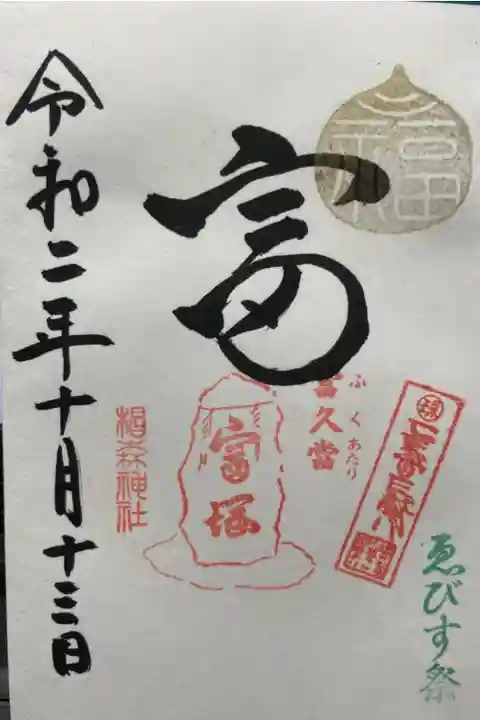 福
ゑびす祭
富久當
ふくあたり
富
富塚
椙森神社
令和二年十月十三日